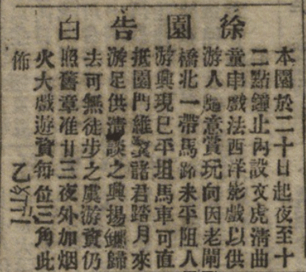 徐園告白
本園于二十日起夜至十
二點鐘止內設文虎清曲
童串戲法西洋影戲以供
游人隨意賞玩向因老閘
橋北一帶馬路未平阻人
游興現已平坦馬車可直
抵園門維冀諸君踏月來
游足供清談之興揚鞭歸
去可無徒步之虞游資仍
照舊章准廿三夜外加烟
火大戲遊資每位三角此
佈